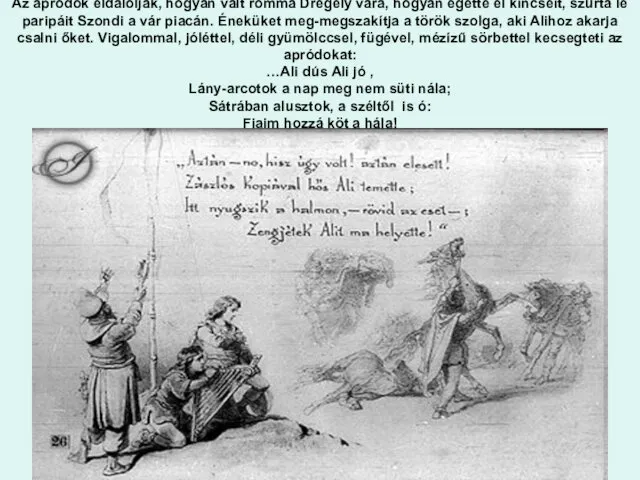 Az apródok eldalolják, hogyan vált rommá Drégely vára, hogyan égette el kincseit, szúrta le
paripáit Szondi a vár piacán. Éneküket meg-megszakítja a török szolga, aki Alihoz akarja
csalni őket. Vigalommal, jóléttel, déli gyümölccsel, fügével, mézízű sörbettel kecsegteti az
apródokat:
…Ali dús Ali jó ,
Lány-arcotok a nap meg nem süti nála;
Sátrában alusztok, a széltől is ó:
Fiaim hozzá köt a hála!
„Aztán — no, hisz úgy volt! aztán elesett!
Zászlós kopiával hős Ali temette;
Itt nyugszik a halmon, — rövid az eset —;
Zengjétek Alit ma helyette!“
26